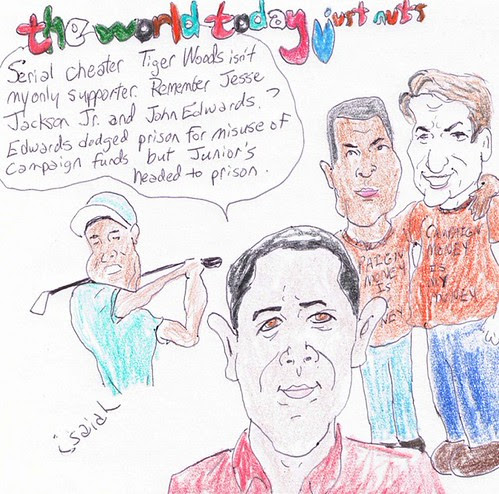 the world today just nuts
Serial cheater Tiger Woods isn't
my only supporter. Remember Jesse
Jackson Jr. and John Edwards?
Edwards dodged prison for misuse of
campaign funds but Junior's
headed to prison.
PAIGN
MONEY
IS
NEY
CAMPAIGN
MONEY
IS
MY
MONEY
isaiah